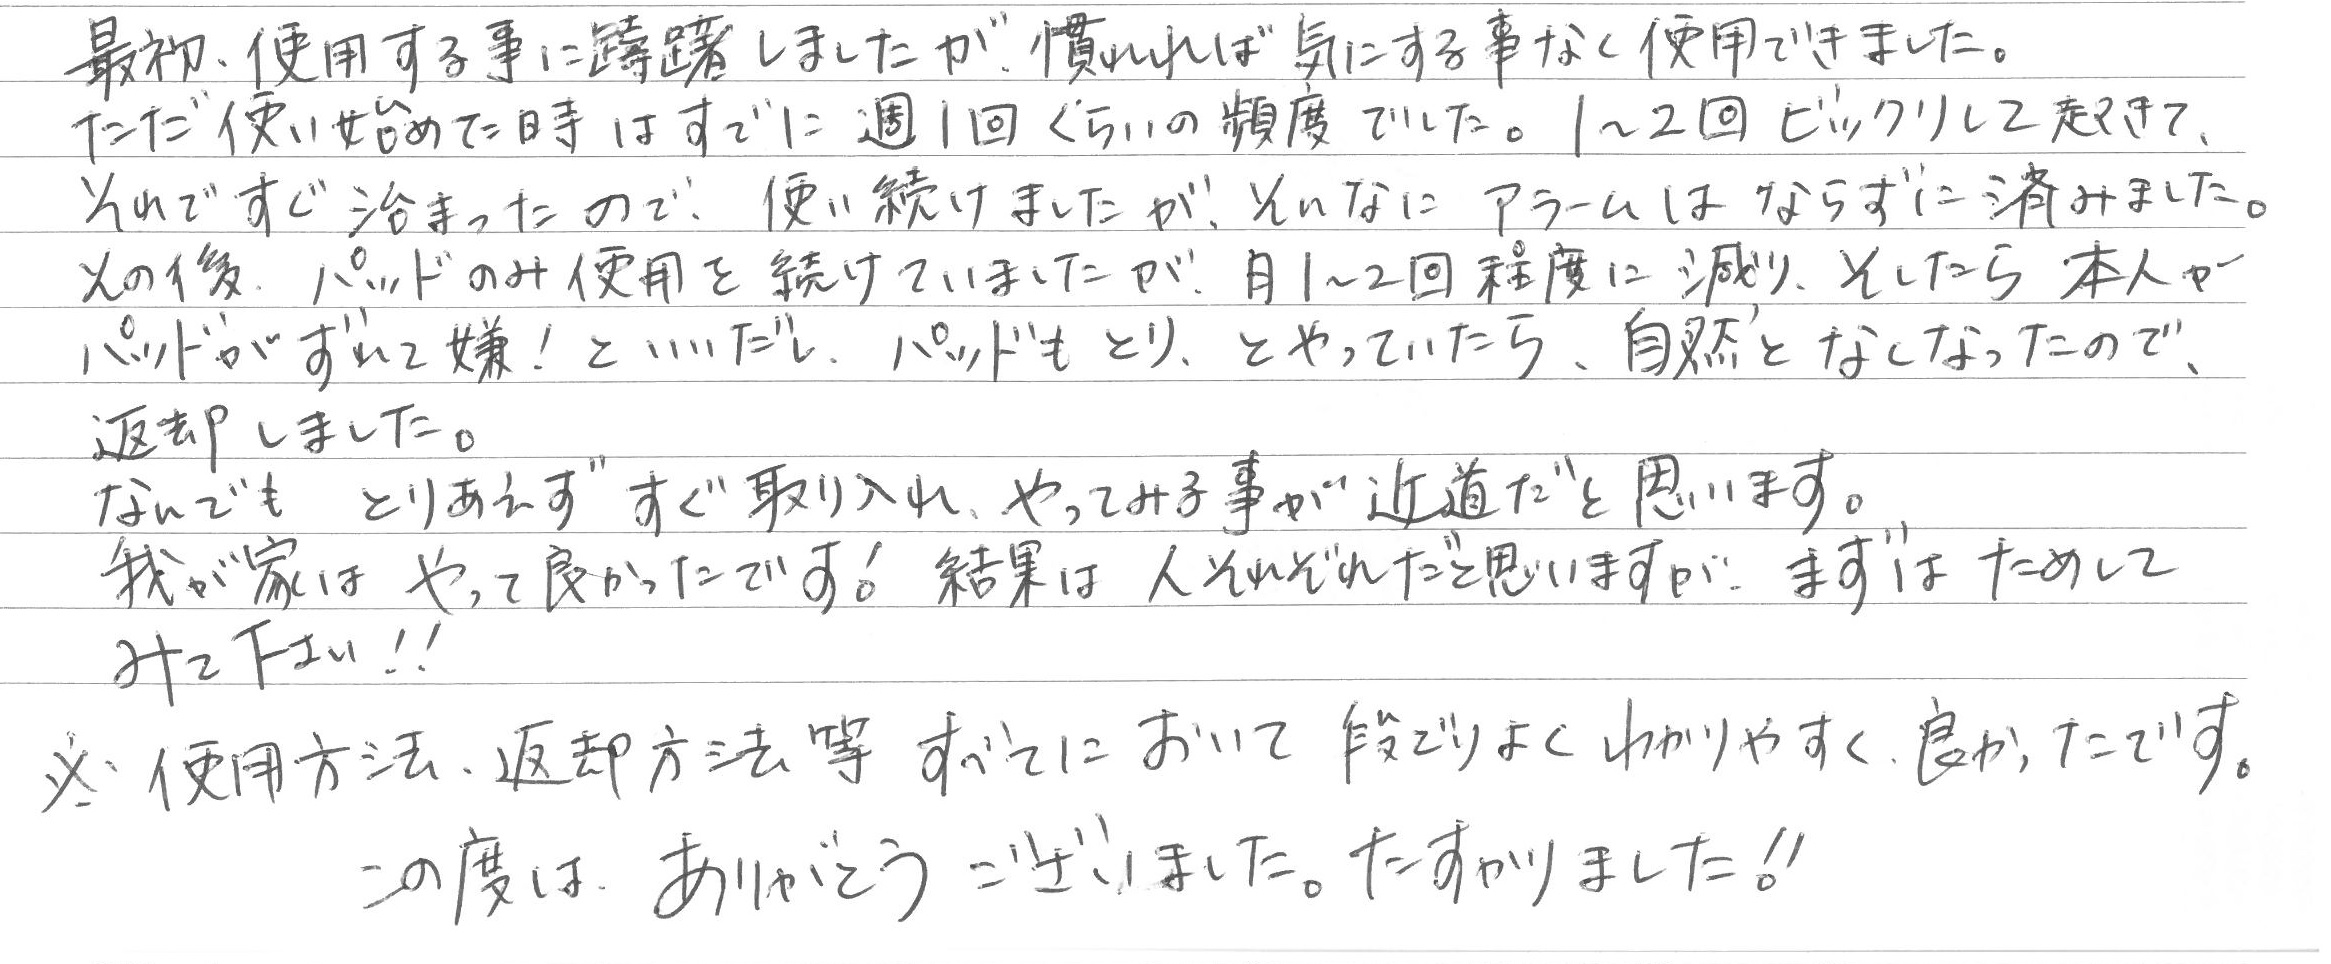 最初、使用する事に躊躇しましたが、慣れれば気にする事なく使用できました。
ただ使い始めた時はすでに週1回ぐらいの頻度でした。1~2回ビックリして起きて、
それですぐ治まったので、使い続けましたが、そんなにアラームはならずに済みました。
その後、パッドのみ使用を続けていましたが、月1~2回程度に減り、そしたら本人が
パッドがずれて嫌!といいだし、パッドもとり、とやっていたら、自然となくなったので、
返却しました。
なんでも とりあえず すぐ取り入れ、やってみる事が近道だと思います。
我が家は やって良かったです!結果は人それぞれだと思いますが、まずは ためして
みて下さい!!
※使用方法、返却方法等 すべてにおいて 段どりよく わかりやすく、良かったです。
この度は、ありがとうございました。たすかりました!!